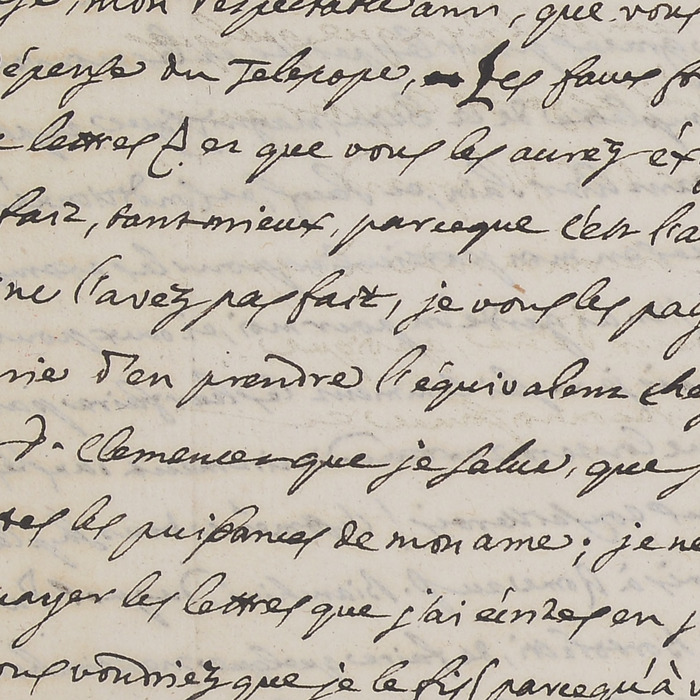 mon respectable ami, que vous
dépense du Telescope, Les faux
lettres et que vous les aurez
fait, tant mieux, parceque c'est l'a
ne l'avez pas fait, je vous les pay
rie d'en prendre l'équivalent che
D. Clemence que je salue, que j
tes les puissances de mon ame; je ne
payer les lettres que j'ai écrites en j
ous voudriez que je le fis parcequ'à